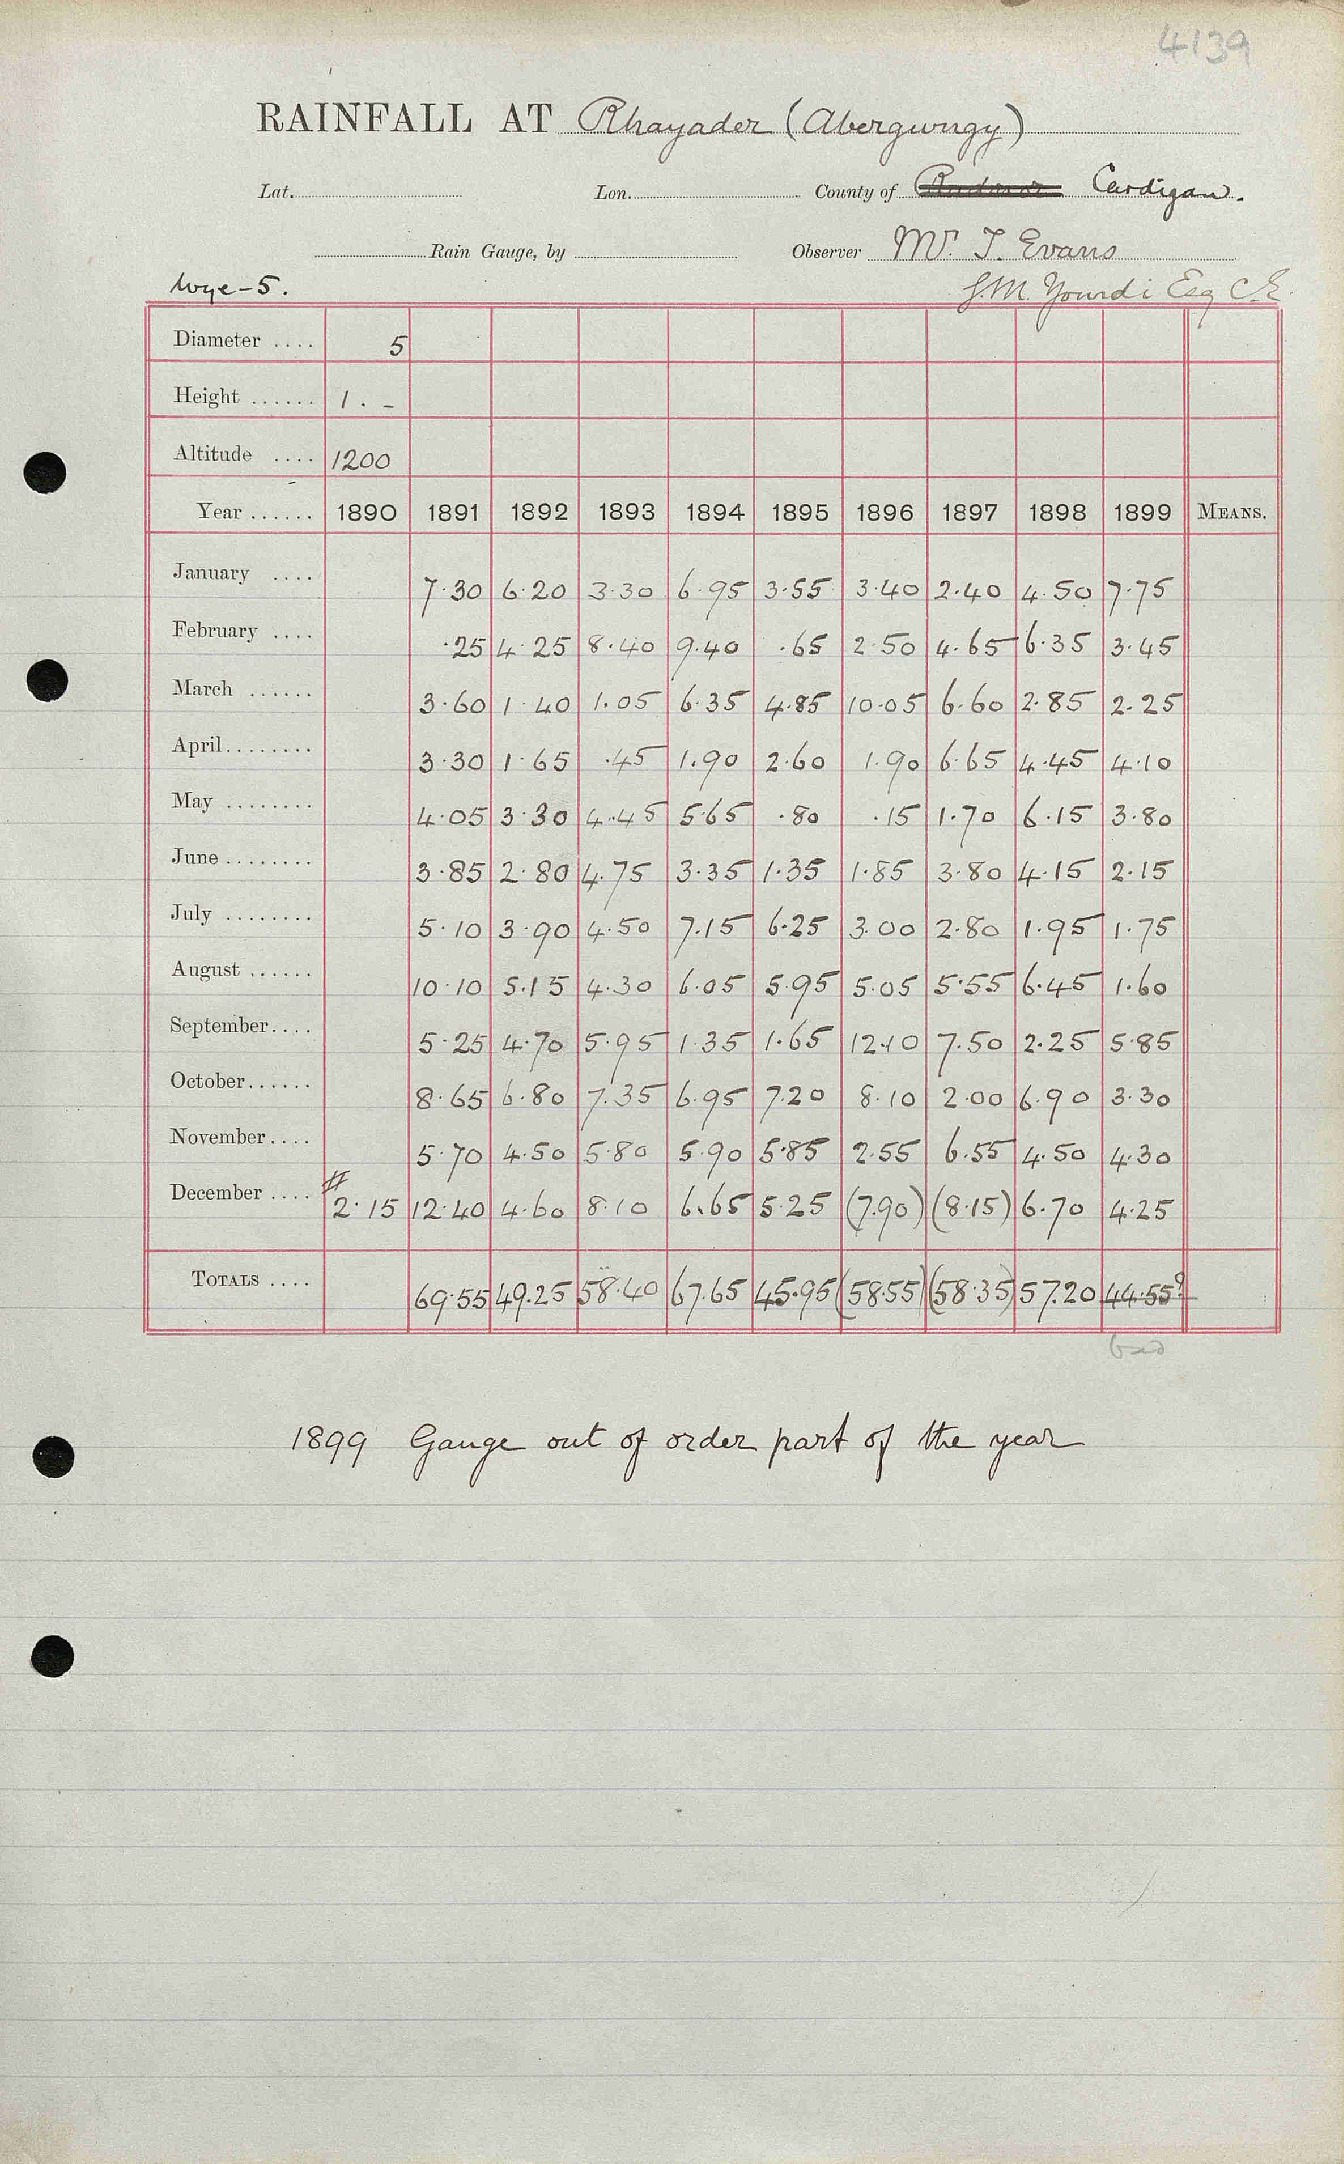 4139
RAINFALL AT Rhayader (Abergwngy)
Lat. Lon. County of Radnor Cardigan.
Rain Gauge, by Observer Mr. T. Evans
Wye-5. J.M. Yourdi Esq C.E.
Diameter .... 5
Height ...... 1 . -
Altitude .... 1200
Year ...... 1890 1891 1892 1893 1894 1895 1896 1897 1898 1899 MEANS.
January .... 7.30 6.20 3.30 6.95 3.55 3.40 2.40 4.50 7.75
February .... .25 4.25 8.40 9.40 .65 2.50 4.65 6.35 3.45
March ...... 3.60 1.40 1.05 6.35 4.85 10.05 6.60 2.85 2.25
April........ 3.30 1.65 .45 1.90 2.60 1.90 6.65 4.45 4.10
May ........ 4.05 3.30 4.45 5.65 .80 .15 1.70 6.15 3.80
June ........ 3.85 2.80 4.75 3.35 1.35 1.85 3.80 4.15 2.15
July ........ 5.10 3.90 4.50 7.15 6.25 3.00 2.80 1.95 1.75
August ...... 10.10 5.15 4.30 6.05 5.95 5.05 5.55 6.45 1.60
September.... 5.25 4.70 5.95 1.35 1.65 12.10 7.50 2.25 5.85
October...... 8.65 6.80 7.35 6.95 7.20 8.10 2.00 6.90 3.30
November.... 5.70 4.50 5.80 5.90 5.85 2.55 6.55 4.50 4.30
December .... # 2.15 12.40 4.60 8.10 6.65 5.25 (7.90) (8.15) 6.70 4.25
TOTALS .... 69.55 49.25 58.40 67.65 45.95 (58.55) (58.35) 57.20 44.55?
bad
1899 Gauge out of order part of the year